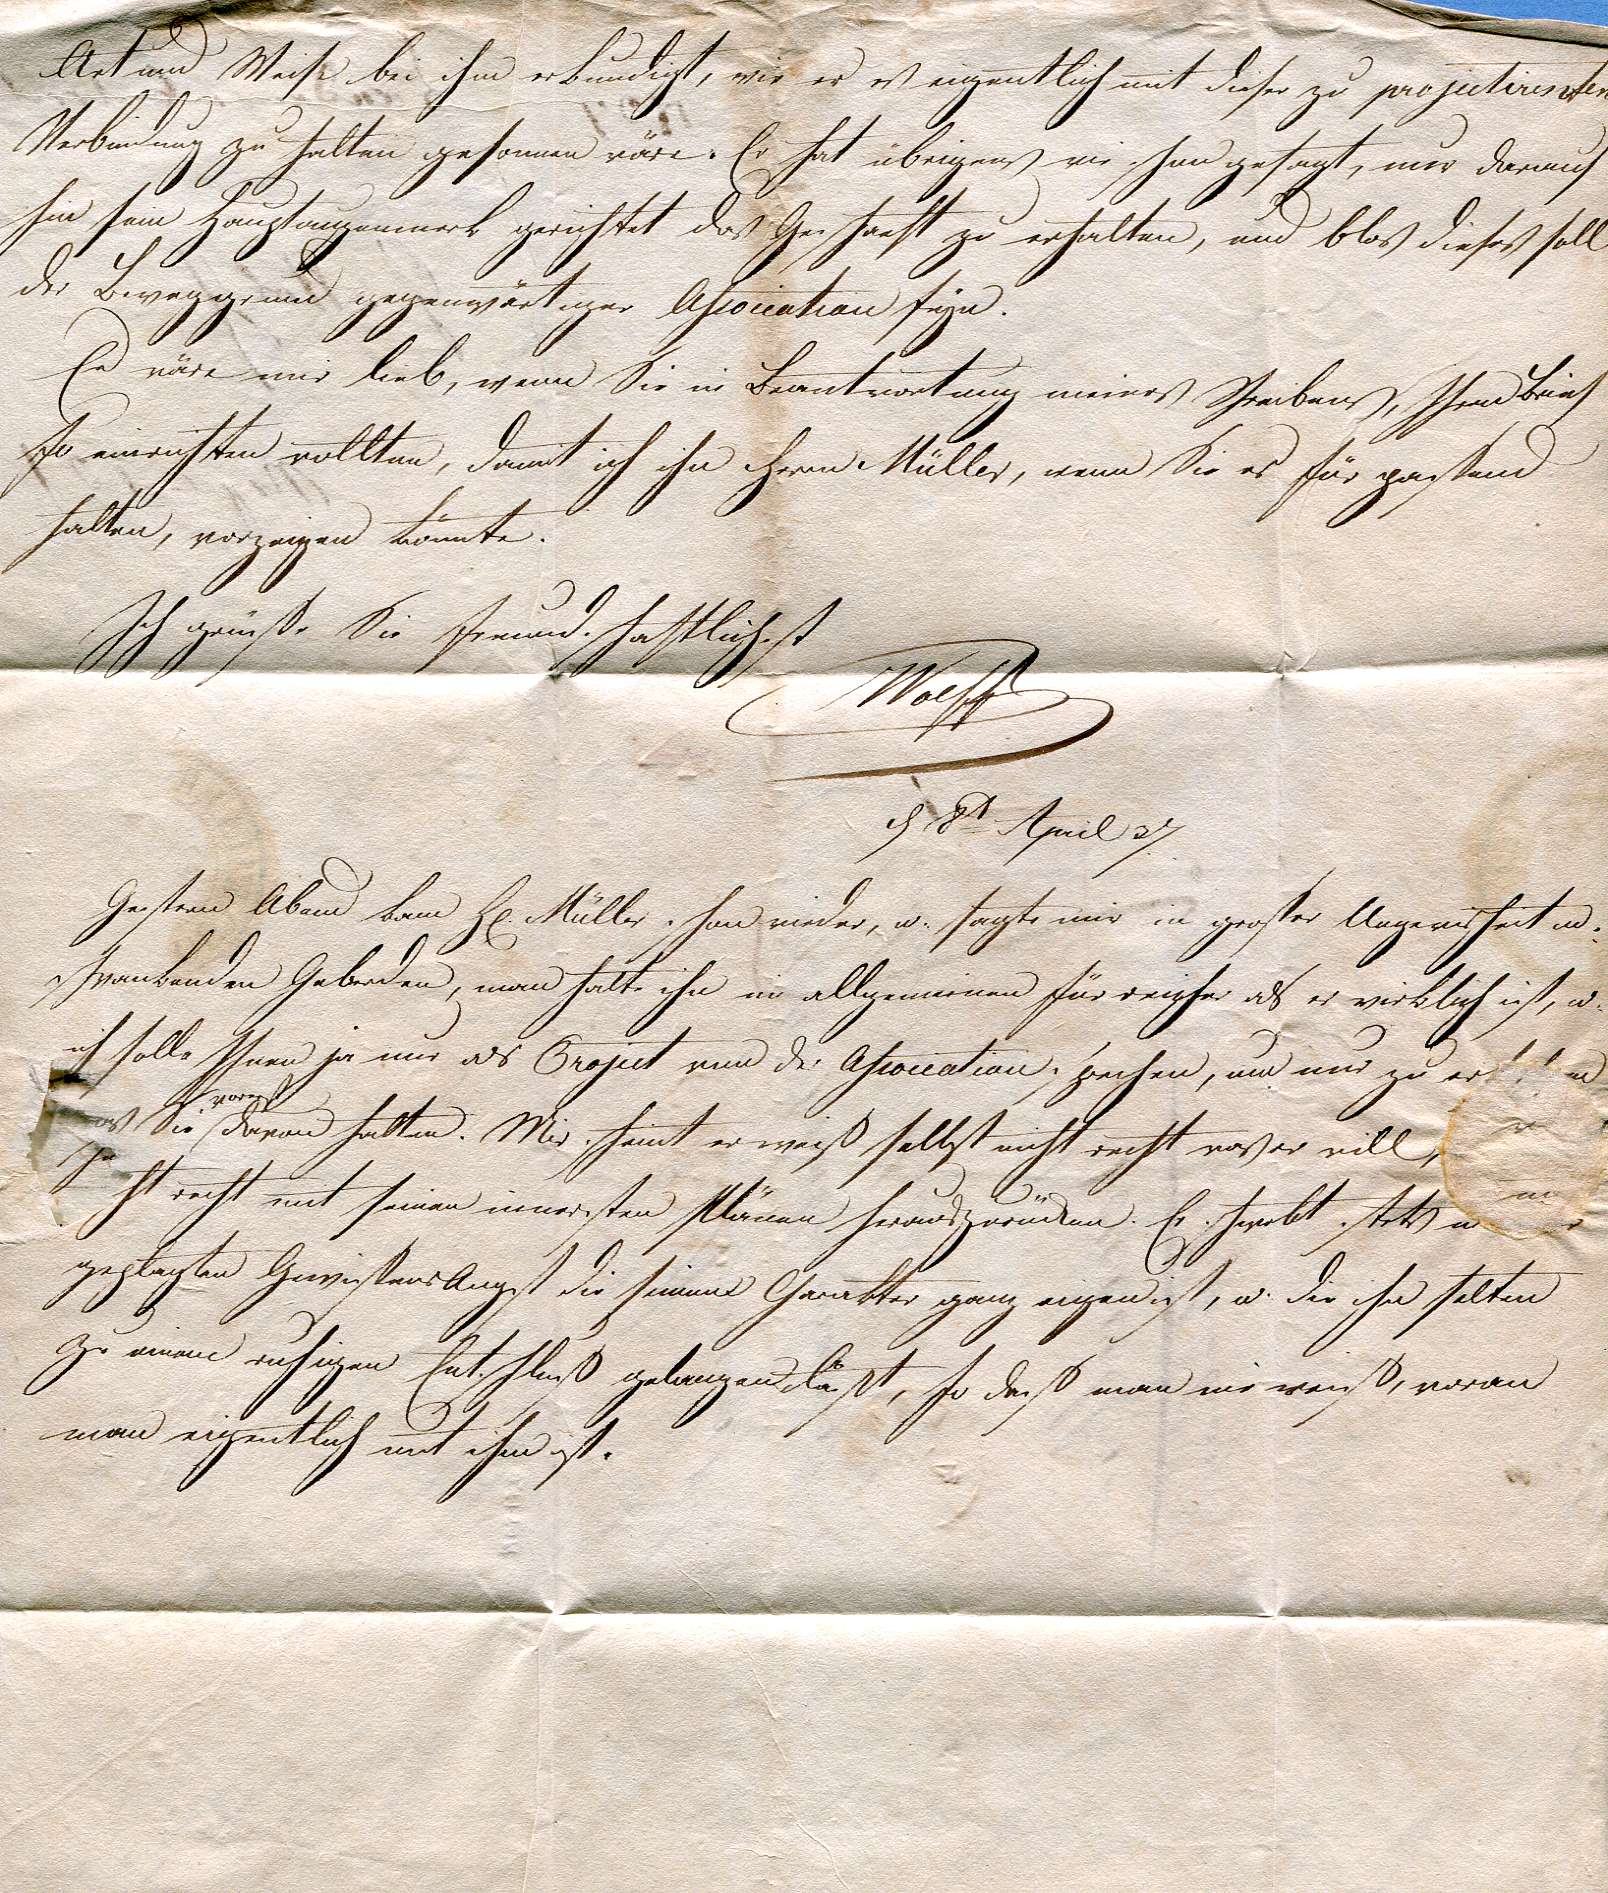 Art und Weise bei ihm erkundigt, wie er es eigentlich mit dieser zu projectirenden
Verbindung zu halten gesonnen wäre. Er hat übrigens wie schon gesagt, nur darauf
hin sein Hauptaugenmerk gerichtet das Geschaeft zu erhalten, und blos dieses soll
der Beweggrund gegenwärtiger Association seyn.
Es wäre mir lieb, wenn Sie in Beantwortung meines Schreibens, Ihren Brief
so einrichten wollten, damit ich ihn Herrn Müller, wenn Sie es für passend
halten, vorzeigen könnte.
Ich grüsse Sie freundschaftlichst
Wolff
d 8t April 37
Gestern Abend kam H. Müller schon wieder, u. sagte mir in grosser Ungewisheit u.
schwankenden Geberden, man halte ihn im allgemeinen für reicher als er wirklich ist, u.
ich solle Ihnen ja nur als Project von der Association sprechen, um nur zu
was Sie vorerst davon halten. Mir scheint er weiß selbst nicht recht was er will,
recht mit seinen innersten Plänen herauszurücken. Er schwebt stets
geplagten Gewissens Angst die seinem Charakter ganz eigen ist, u. die ihn selten
zu einem ruhigen Entschluß gelangen läßt, so daß man nie weiß, woran
man eigentlich mit ihm ist.